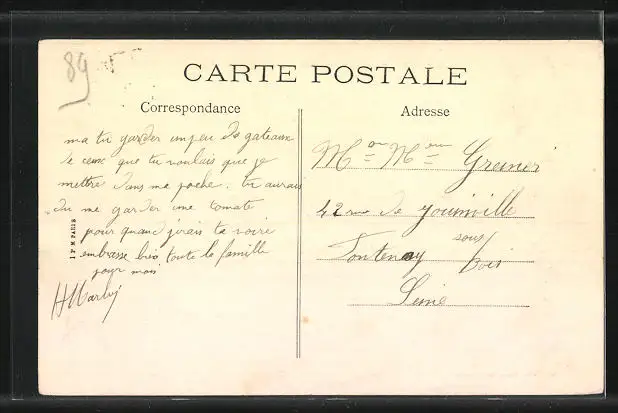 89
CARTE POSTALE
Correspondance
Adresse
ma tu garder un peu de gateaux
de ceux que tu voulais que je
mettre dans ma poche. tu aurais
du me garder une tomate
pour quand j'irais te voire
embrasse bien toute la famille
pour moi
I P M PARIS
Mr Mme Greiner
42 rue de Joinville
Fontenay sous/Bois
Seine